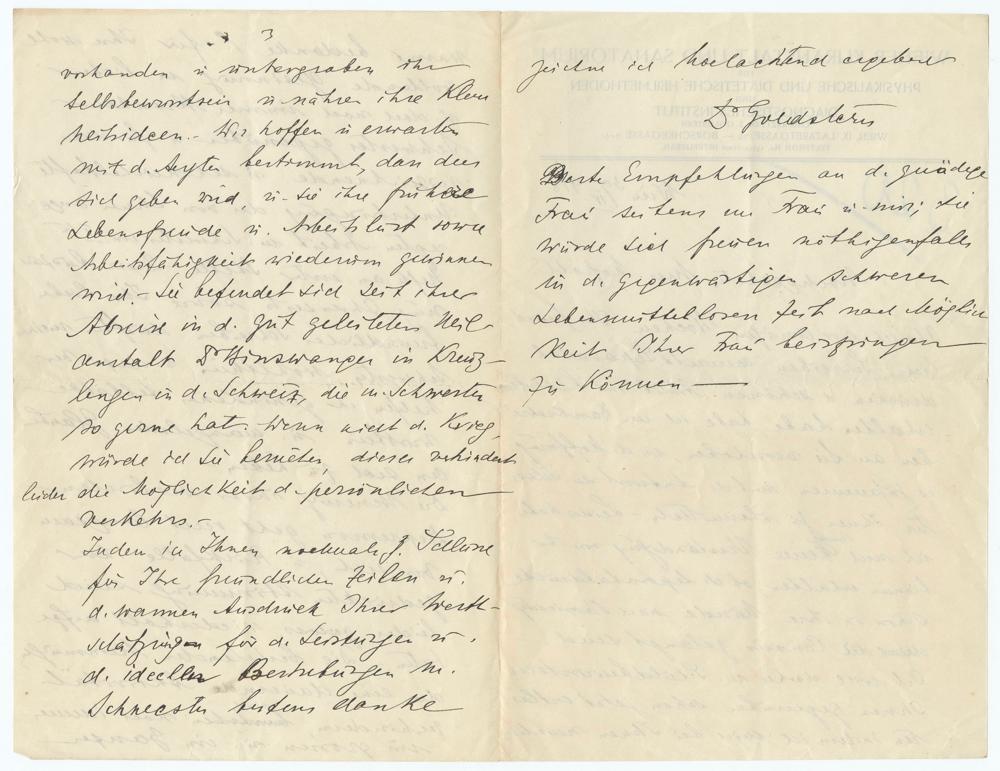 3
vorhanden u untergraben ihr
Selbstbewusstsein u. nähren ihre Klein
heitsideen. - Wir hoffen u erwarten
mit d. Ärzten bestimmt, dass dies
sich geben wird, u. sie ihre frühere
Lebensfreude u. Arbeitslust sowie
Arbeitsfähigkeit wiederum gewinnen
wird. - Sie befindet sich seit ihrer
Abreise in d. gut geleiteten Heil-
anstalt Dr Binswanger in Kreuz-
lingen in d. Schweiz, die m. Schwester
so gerne hat. Wenn nicht d. Krieg,
würde ich sie besuchen, dieser verhindert
leider die Möglichkeit d. persönlichen
Verkehrs. -
Indem ich Ihnen nochmals z. Schlusse
für Ihre freundlichen Zeilen u.
d. warmen Ausdruck Ihrer Werth-
schätzung für d. Leistungen u.
d. ideellen Bestrebungen m.
Schwester bestens danke
zeichne ich hochachtend ergebenst
Dr Goldstern
Beste Empfehlungen an d. gnädige
Frau seitens m Frau u. mir; sie
würde sich freuen nöthigenfalls
in d. gegenwärtigen schweren
Lebensmittellosen Zeit nach Möglich
keit Ihrer Frau beispringen
zu können —
WIENER KURANSTALT UND SANATORIUM
PHYSIKALISCHE UND DIÄTETISCHE HEILMETHODEN